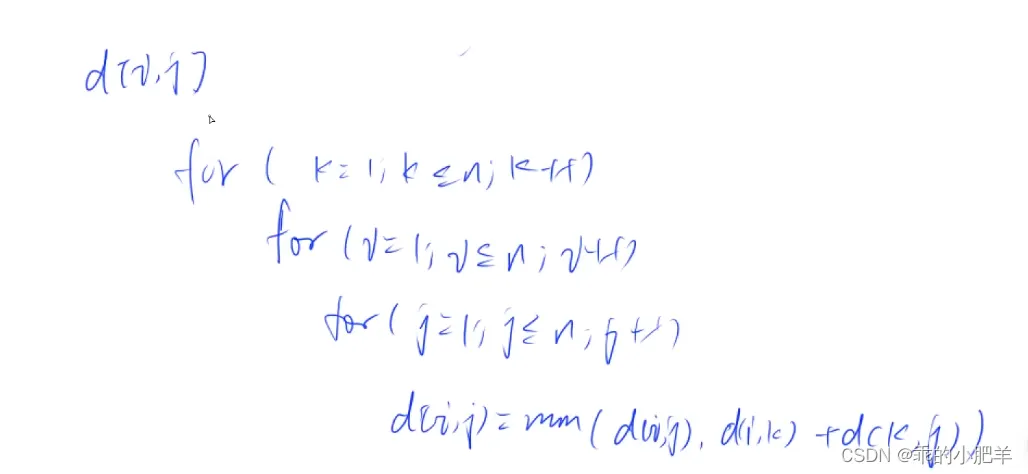 d[i,j]
for ( k=1; k≤n; k++)
for (i=1; i≤n; i++)
for( j=1; j≤n; j++)
d(i,j)=min( d(i,j), d(i,k) +d(k,j))
CSDN @乖的小肥羊